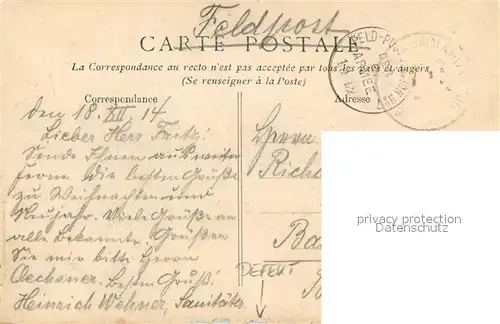 Feldpost
CARTE POSTALE
La Correspondance au recto n'est pas acceptée par tous les pays étrangers.
(Se renseigner à la Poste)
Correspondance
Adresse
Den 18. XII 14
Lieber Herr Fritz!
Sende Ihnen aus weiter
ferne die besten Grüße
zu Weihnachten und
Neujahr. Viele Grüße an
alle Bekannte. Grüßen
Sie mir bitte Herrn
Oechsner. Besten Gruß!
Heinrich Wehner, Sanitäts
Herrn
Richa
Ba
DEFEKT
privacy protection
watermark